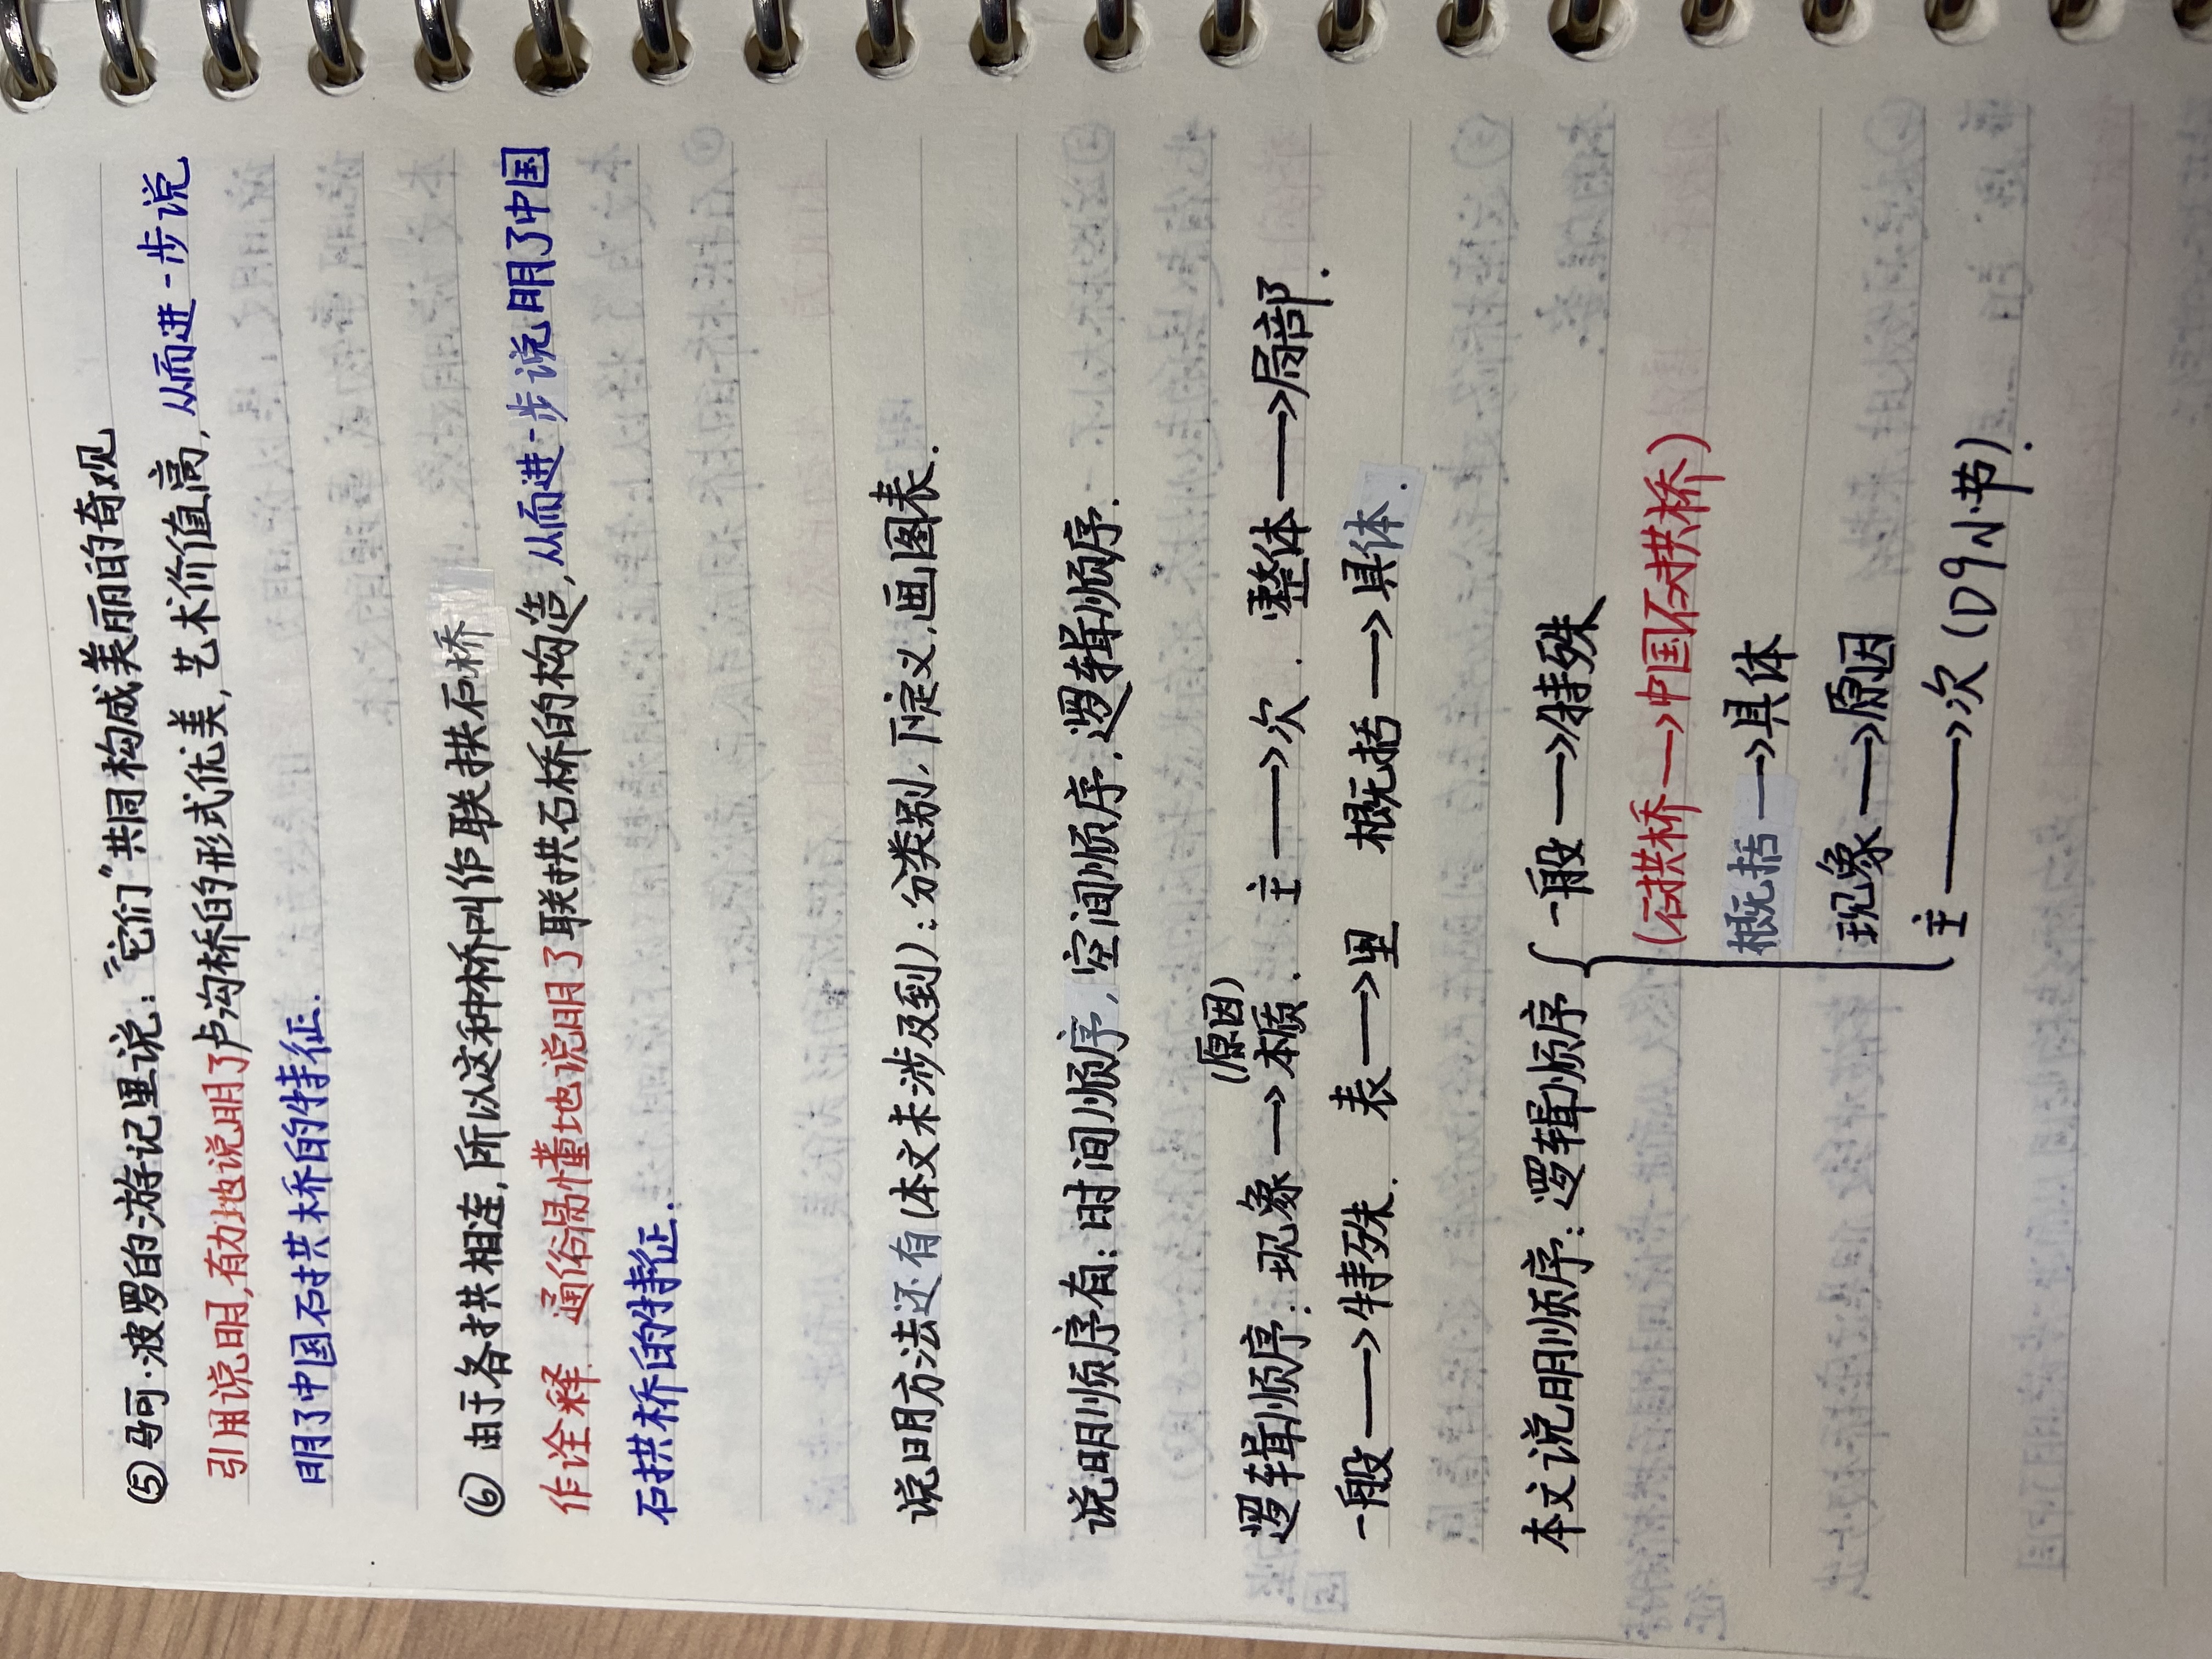 ⑤ 马可·波罗的游记里说："它们"共同构成美丽的奇观
引用说明,有力地说明了卢沟桥的形式优美,艺术价值高,从而进一步说
明了中国石拱桥的特征.
⑥ 由于各拱相连,所以这种桥叫作联拱石桥
作诠释 通俗易懂地说明了联拱石桥的构造,从而进一步说明了中国
石拱桥的特征.
说明方法还有(本文未涉及到):分类别、下定义、画图表.
说明顺序有:时间顺序,空间顺序,逻辑顺序.
(原因)
逻辑顺序:现象→本质. 主→次. 整体→局部.
一般→特殊. 表→里 概括→具体.
本文说明顺序:逻辑顺序{一般→特殊
(石拱桥→中国石拱桥)
概括→具体
现象→原因
主→次(D9小节).